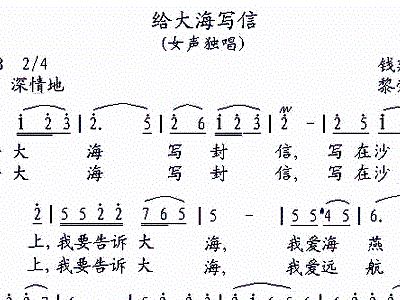 给大海写信
(女声独唱)
2/4 钱
深情地 黎
i 2 3 | 2. 5 | 2 6 i 2 3 | 2 - | 2 5 i
大 海 写 封 信, 写 在 沙
大 海 写 封 信, 写 在 沙
2 | 5 5 2 2 7 6 5 | 5 - | 5 5 4 5 | 6.
上, 我 要 告 诉 大 海, 我 爱 海 燕
上, 我 要 告 诉 大 海, 我 爱 远 航